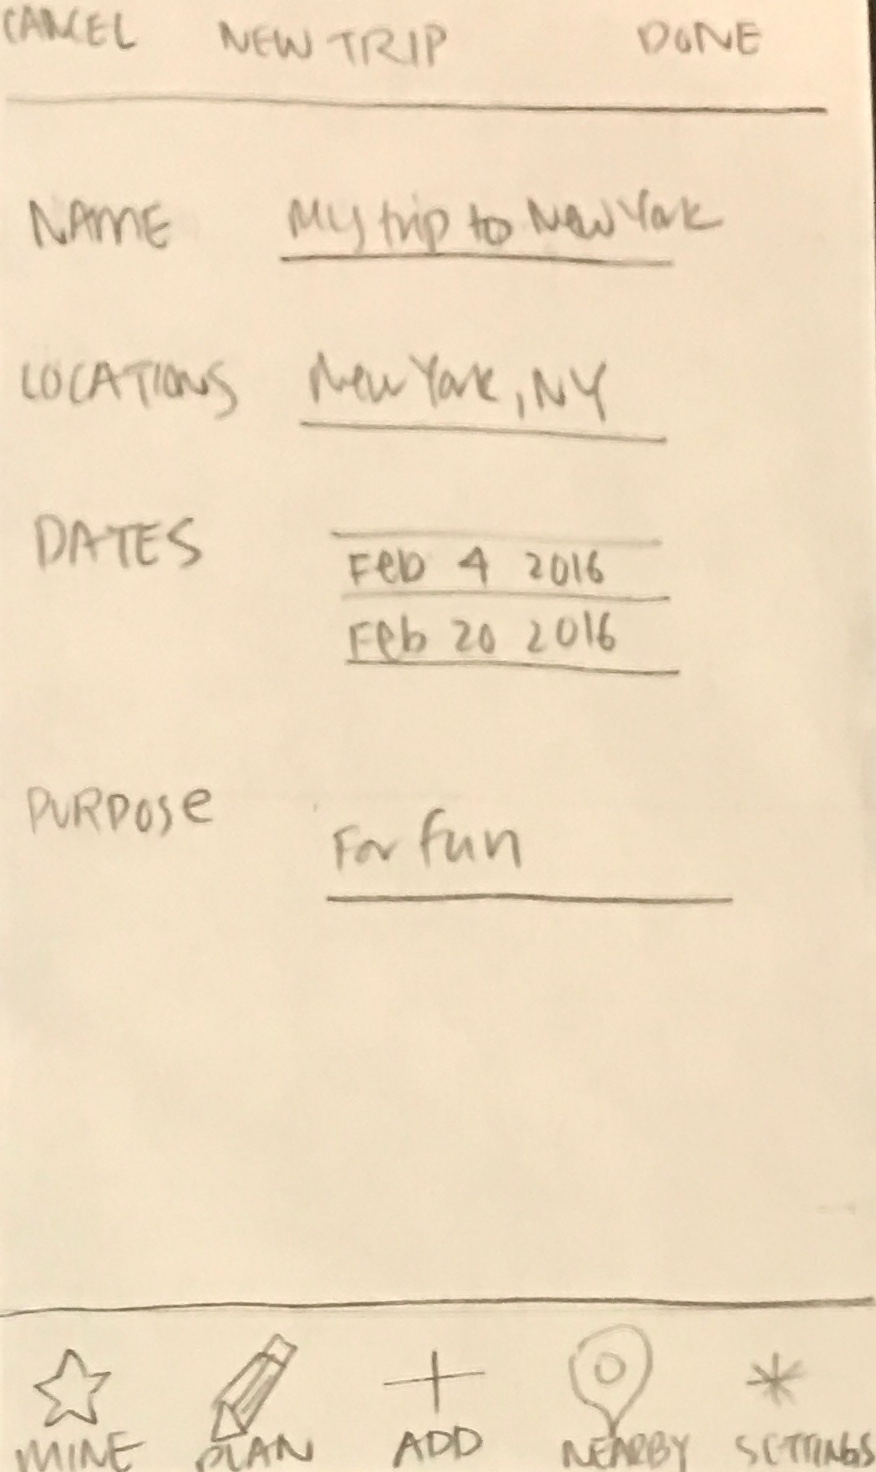 CANCEL NEW TRIP DONE
NAME My trip to New York
LOCATIONS New York, NY
DATES Feb 4 2016
Feb 20 2016
PURPOSe For fun
MINE PLAN ADD NEARBY SETTINGS